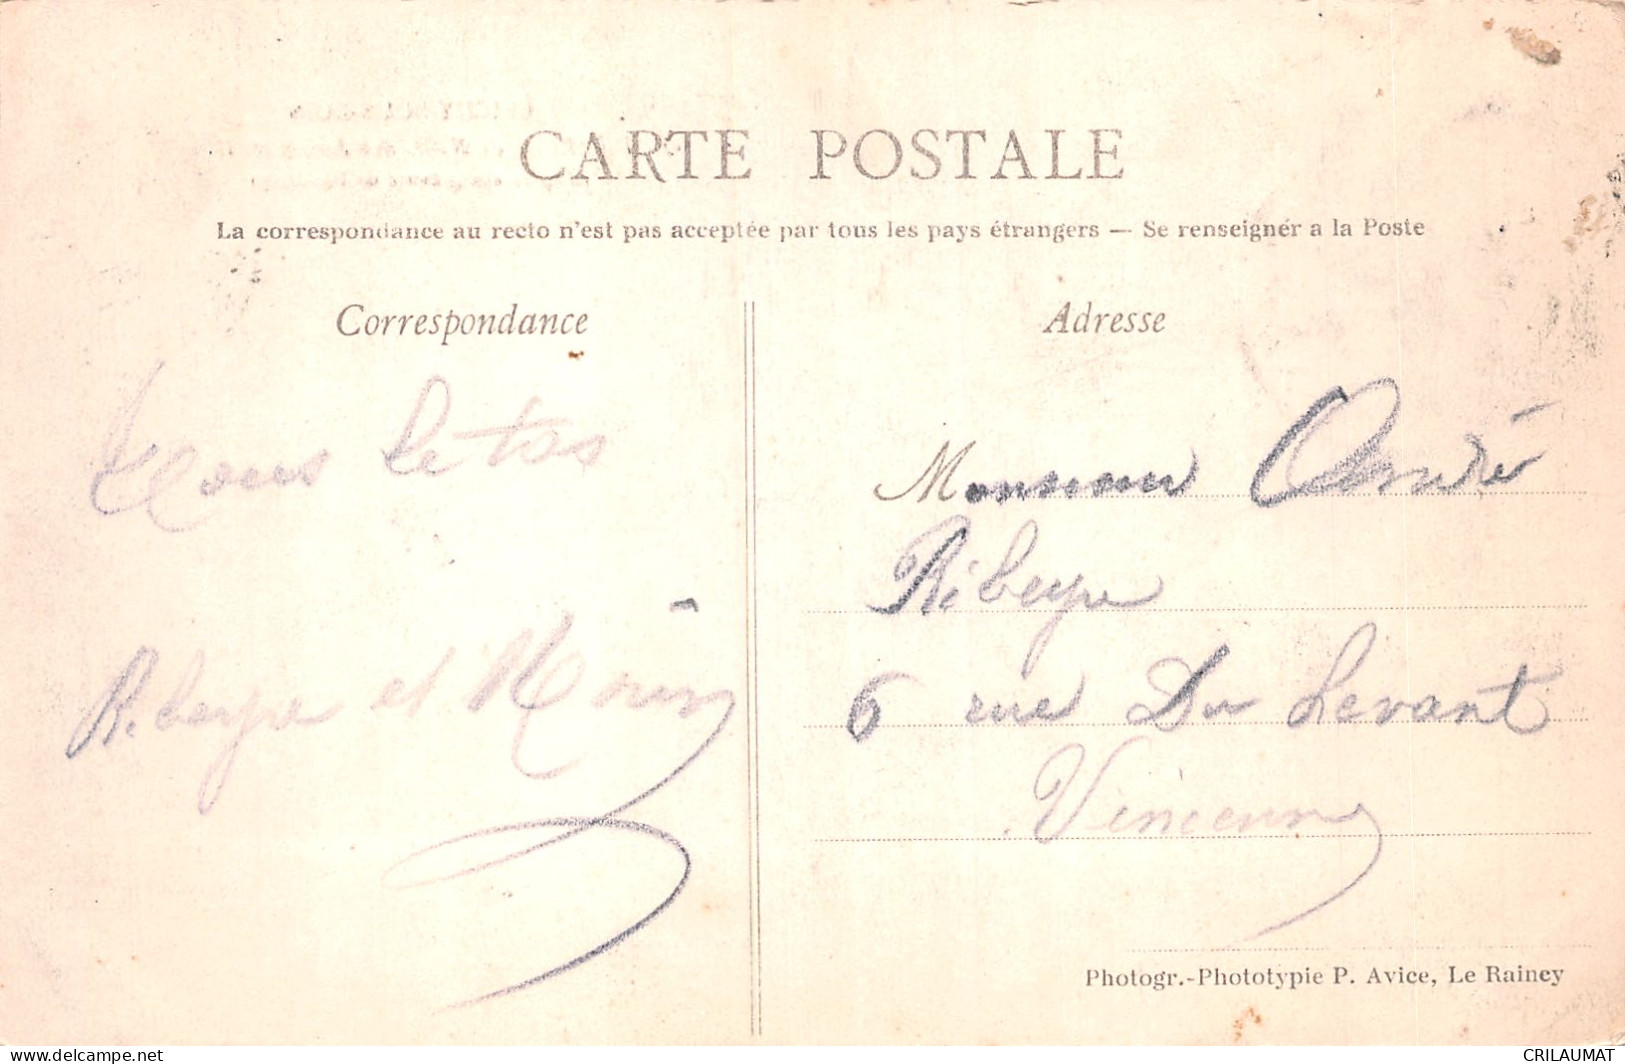 CARTE POSTALE
La correspondance au recto n'est pas acceptée par tous les pays étrangers — Se renseignér a la Poste
Correspondance
Ribeyre et
Adresse
Monsieur André
Ribeyre
6 rue Du Levant
Vincennes
Photogr.-Phototypie P. Avice, Le Rainey
www.delcampe.net
CRILAUMAT